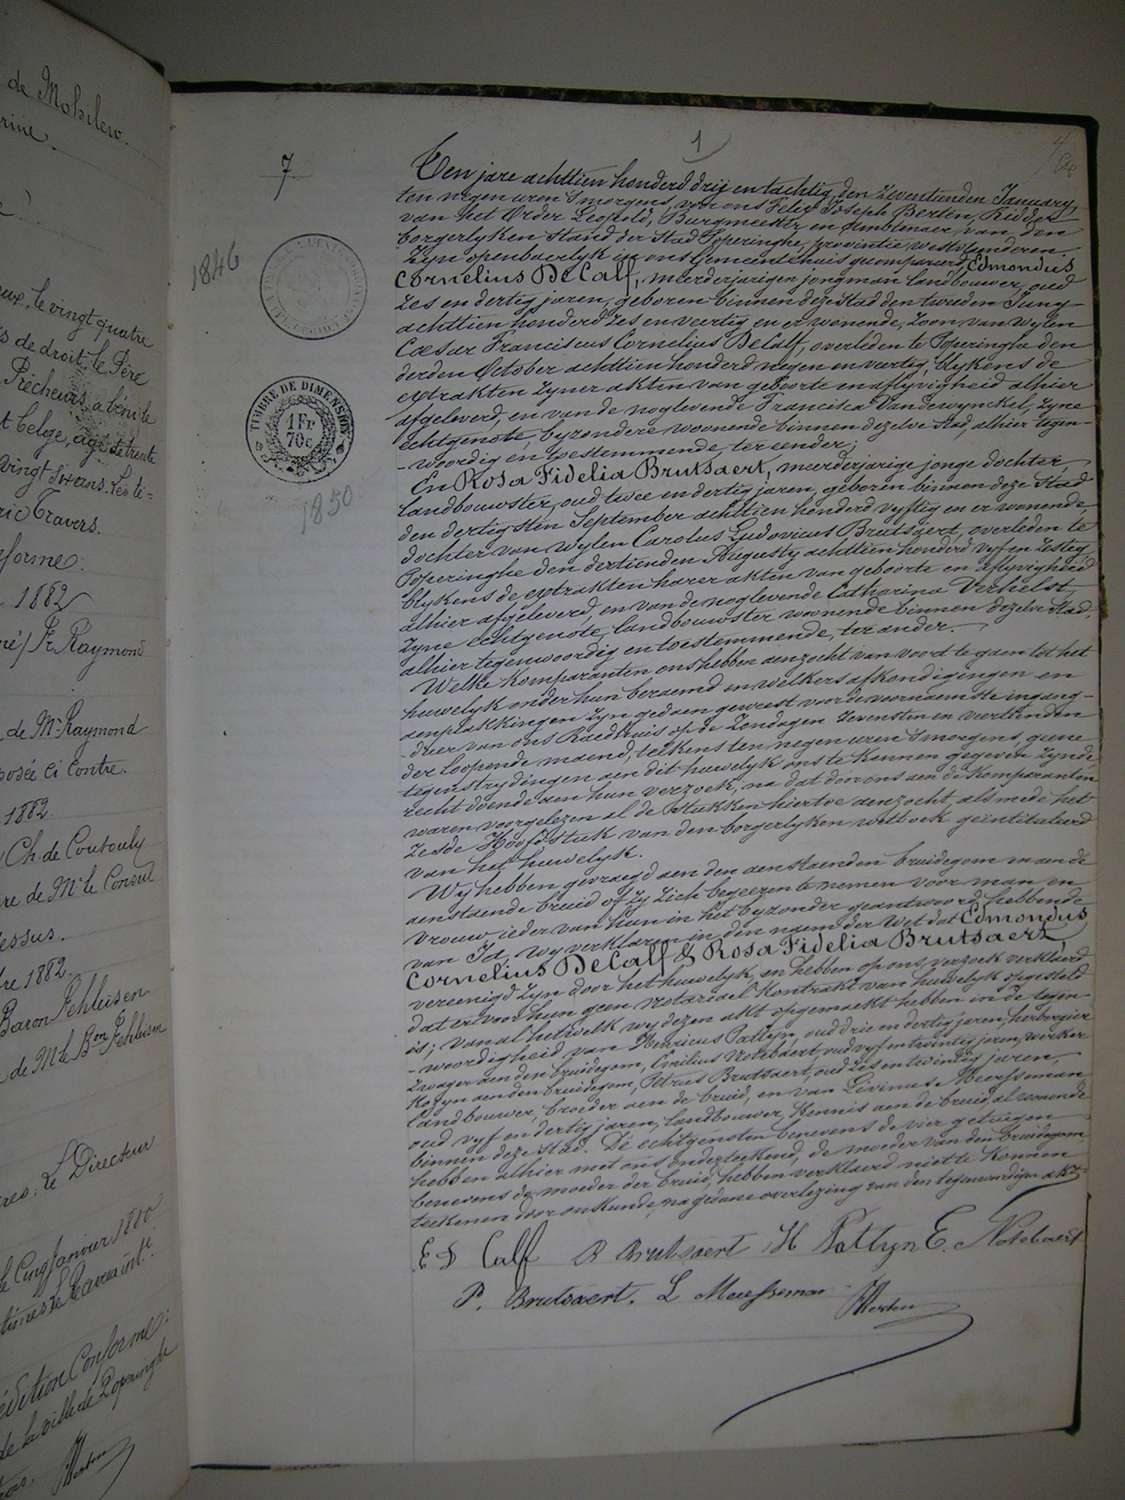 de Mohilew.
rine.
eux, le vingt quatre
s de droit, le Père
Prêcheurs, a béni le
t belge, âgé de trente
vingt six ans. Les té-
ric Travers.
forme:
1882
né/ Fr. Raymond
de Mr Raymond
posée ci contre.
1882.
Ch. de Coutouly
re de Mr le Consul
dessus.
re 1882.
Baron Fehleisen
de Mr le Bon Fehleisen
Le Directeur
le Cinq Janvier 1880
Expédition Conforme:
de la ville de Poperinghe
7
1846
TIMBRE DE DIMENSION
1 Fr
70c
1850
1
4
Ten jare achttien honderd drij en tachtig, den zeventienden January,
ten negen uren 's morgens, voor ons Felix Joseph Berten, Ridder
van het Order Leopold, Burgmeester en Ambtenaer van den
borgerlyken stand der stad Poperinghe, provintie Westvlaenderen
Zyn openbaerlyk in ons Gemeentehuis gecompareerd, Edmondus
Cornelius De Calf, meerderjarigen jongman landbouwer, oud
zes en dertig jaren, geboren binnen deze stad den tweeden Juny
achttien honderd zes en veertig en er wonende, zoon van wylen
Cæsar Franciscus Cornelius Decalf, overleden te Poperinghe den
derden October achttien honderd negen en veertig, blykens de
extrakten zyner akten van geboorte en aflyvigheid alhier
afgeleverd, en van de noglevende Francisca Vandewynckel, zyne
echtgenote, byzondere woonende binnen dezelve stad, alhier tegen-
-woordig en toestemmende, ter eender;
En Rosa Fidelia Brutsaert, meerderjarige jonge dochter,
landbouwster, oud twee en dertig jaren, geboren binnen deze stad
den dertigsten September achttien honderd vyftig en er wonende,
dochter van wylen Carolus Ludovicus Brutsaert, overleden te
Poperinghe den dertienden Augusty achttien honderd vyf en zestig,
blykens de extrakten harer akten van geboorte en aflyvigheid
alhier afgeleverd, en van de noglevende Catharina Verhelst,
zyne echtgenote, landbouwster woonende binnen dezelve stad,
alhier tegenwoordig en toestemmende, ter ander.
Welke komparanten ons hebben aenzocht van voord te gaen tot het
huwelyk onder hun beraemd en welkers afkondigingen en
aenplakkingen zyn gedaen geweest voor de voornaemste ingang-
-deur van ons Raedhuis op de Zondagen zevensten en veertienden
der loopende maend, telkens ten negen uren 's morgens, geene
tegenstrydingen aen dit huwelyk ons te kennen gegeven zynde
recht doende aen hun verzoek, na dat door ons aen de komparanten
waren voorgelezen al de stukken hiertoe aenzocht, als mede het
Zesde Hoofdstuk van den borgerlyken wetboek geïntituleerd
van het huwelyk.
Wy hebben gevraegd aen den aenstaenden bruidegom en aen de
aenstaende bruid of zy zich begeeren te nemen voor man en
vrouw ieder van hun in het byzonder geantwoord hebbende
van Ja, wy verklaren in den naem der Wet dat Edmondus
Cornelius De Calf & Rosa Fidelia Brutsaert,
vereenigd zyn door het huwelyk, en hebben op ons verzoek verklaerd
dat er voor hun geen Notariael Kontrakt van huwelyk opgesteld
is; van al hetwelk wy dezen akt opgemaekt hebben in de tegen-
-woordigheid van Henricus Pattyn, oud drie en dertig jaren, herbergier
Zwager aen den bruidegom, Emilius Notebaert, oud vyf en twintig jaren, werker
Kozyn aen den bruidegom, Petrus Brutsaert, oud zes en twintig jaren,
landbouwer, broeder aen de bruid, en van Livinus Meersseman
oud vyf en dertig jaren, landbouwer, kennis aen de bruid, al wonende
binnen deze stad. De echtgenoten benevens de vier getuigen
hebben alhier met ons onderteekend, de moeder van den bruidegom
benevens de moeder der bruid, hebben verklaerd niet te konnen
teekenen door onkunde, na gedane overlezing van den tegenwoordigen akt.
E D Calf R Brutsaert H Pattyn E. Notebaert
P. Brutsaert. L Meersseman Berten